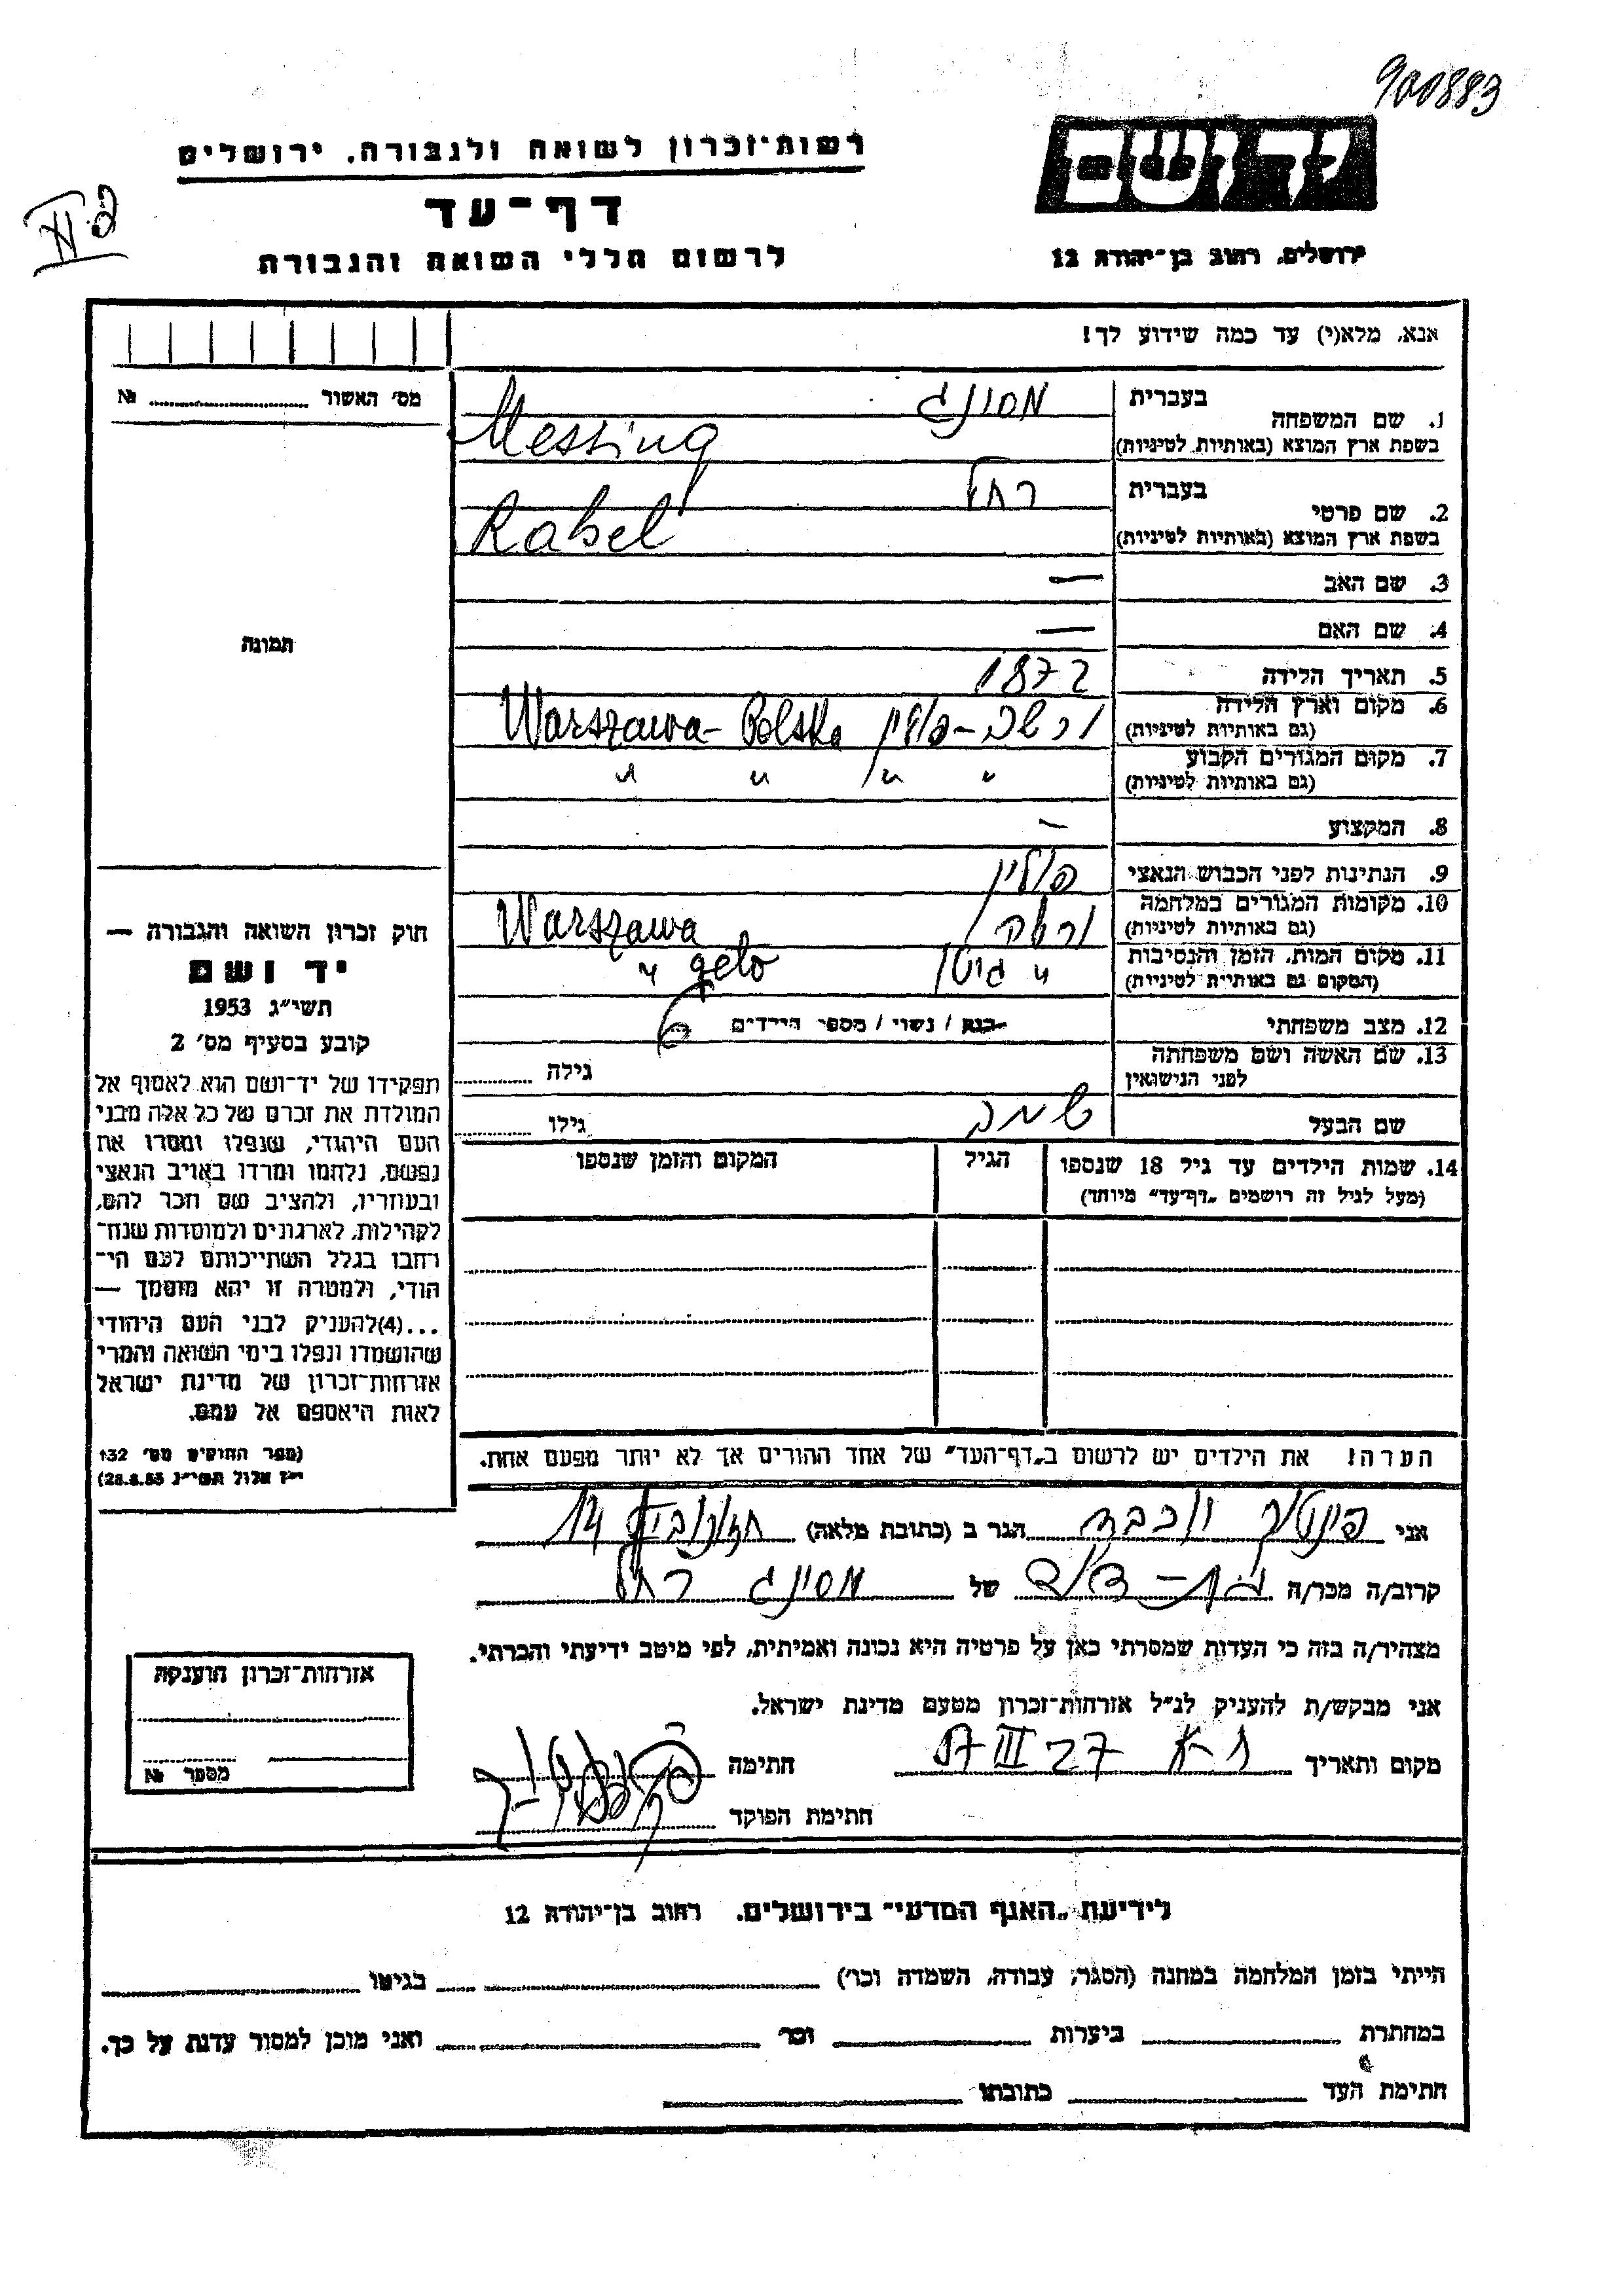 900883
רשות־זכרון לשואה ולגבורה, ירושלים
יד ושם
דף־עד
לרשום חללי השואה והגבורה
ירושלים, רחוב בן־יהודה 12
אנא, מלא(י) עד כמה שידוע לך!
מס׳ האשור № 
1. שם המשפחה בעברית מסינג
בשפת ארץ המוצא (באותיות לטיניות) Messing
2. שם פרטי בעברית רחל
בשפת ארץ המוצא (באותיות לטיניות) Rahel
3. שם האב —
4. שם האם —
5. תאריך הלידה 1872
6. מקום וארץ הלידה (גם באותיות לטיניות) ורשה - פולין Warszawa - Polska
7. מקום המגורים הקבוע (גם באותיות לטיניות) " " " "
8. המקצוע —
9. הנתינות לפני הכבוש הנאצי פולין
10. מקומות המגורים במלחמה (גם באותיות לטיניות) ורשה Warszawa
11. מקום המות, הזמן והנסיבות (המקום גם באותיות לטיניות) " גיטו " geto
12. מצב משפחתי רווק / נשוי / מספר הילדים 6
13. שם האשה ושם משפחתה לפני הנישואין גילה
שם הבעל גילו
14. שמות הילדים עד גיל 18 שנספו
(מעל לגיל זה רושמים „דף־עד” מיוחד)
הגיל
המקום והזמן שנספו
הערה! את הילדים יש לרשום ב„דף־העד” של אחד ההורים אך לא יותר מפעם אחת.
תמונה
חוק זכרון השואה והגבורה —
יד ושם
תשי״ג 1953
קובע בסעיף מס׳ 2
תפקידו של יד־ושם הוא לאסוף אל
המולדת את זכרם של כל אלה מבני
העם היהודי, שנפלו ומסרו את
נפשם, נלחמו ומרדו באויב הנאצי
ובעוזריו, ולהציב שם וזכר להם,
לקהילות, לארגונים ולמוסדות שנח־
רבו בגלל השתייכותם לעם הי־
הודי, ולמטרה זו יהא מוסמך —
...(4)להעניק לבני העם היהודי
שהושמדו ונפלו בימי השואה והמרי
אזרחות־זכרון של מדינת ישראל
לאות היאספם אל עמם.
(ספר החוקים מס׳ 132
י״ז אלול תשי״ג 28.8.53)
אני יוכבד הגר ב (כתובת מלאה) 14
קרוב/ה מכר/ה של מסינג רחל
מצהיר/ה בזה כי העדות שמסרתי כאן על פרטיה היא נכונה ואמיתית, לפי מיטב ידיעתי והכרתי.
אני מבקש/ת להעניק לנ״ל אזרחות־זכרון מטעם מדינת ישראל.
מקום ותאריך 27 III חתימה
חתימת הפוקד
אזרחות־זכרון הוענקה
מספר №
לידיעת „האגף המדעי” בירושלים, רחוב בן־יהודה 12
הייתי בזמן המלחמה במחנה (הסגר, עבודה, השמדה וכר׳) בגיטו
במחתרת ביערות וכר׳ ואני מוכן למסור עדות על כך.
חתימת העד כתובתו